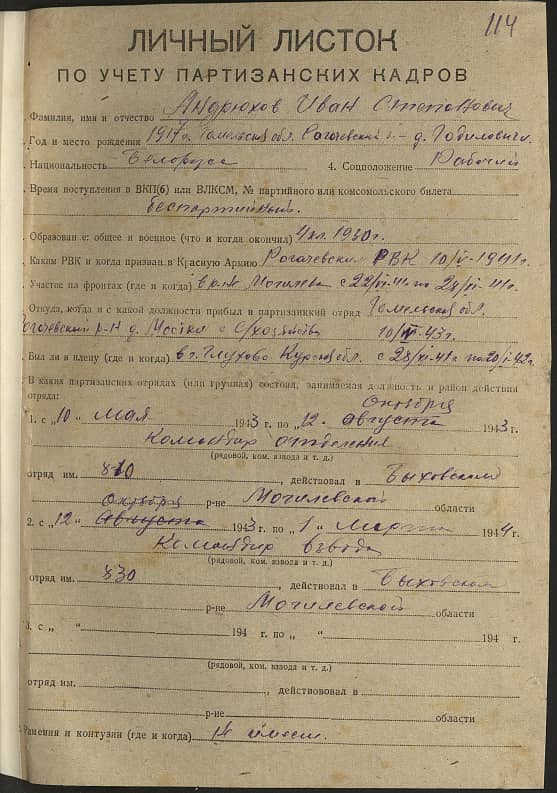 114
ЛИЧНЫЙ ЛИСТОК
ПО УЧЕТУ ПАРТИЗАНСКИХ КАДРОВ
. Фамилия, имя и отчество Андрюхов Иван Степанович
. Год и место рождения 1917 г. Гомельская обл. Рогачевский р-н д. Годиловичи
. Национальность Белорусс 4. Соцположение Рабочий
. Время поступления в ВКП(б) или ВЛКСМ, № партийного или комсомольского билета
беспартийный.
. Образование: общее и военное (что и когда окончил) 4 кл. 1930 г.
. Каким РВК и когда призван в Красную Армию Рогачевским РВК 10/V-1941 г.
. Участие на фронтах (где и когда) Могилева с 22/VI-41 по 28/VI-41 г.
. Откуда, когда и с какой должности прибыл в партизанский отряд Гомельская обл.
Рогачевский р-н д. Мостки с с/хозяйства 10/V-43 г.
. Был ли в плену (где и когда) в г. Глухово Курская обл. с 28/VI-41 по 20/I-42 г.
. В каких партизанских отрядах (или группах) состоял, занимаемая должность и район действия
отряда:
октября
1. с „10„ мая 1943 г. по „12„ августа 1943 г.
Командир отделения
(рядовой, ком. взвода и т. д.)
отряд им. 810, действовал в Быховском
р-не Могилевской области
октября
2. с „12„ августа 1943 г. по „1„ марта 1944 г.
Командир взвода
(рядовой, ком. взвода и т. д.)
отряд им. 830, действовал в Быховском
р-не Могилевской области
3. с „ “ 194 г. по „ “ 194 г.
(рядовой, ком. взвода и т. д.)
отряд им. , действововал в
р-не области
Ранения и контузии (где и когда) Не имеет.